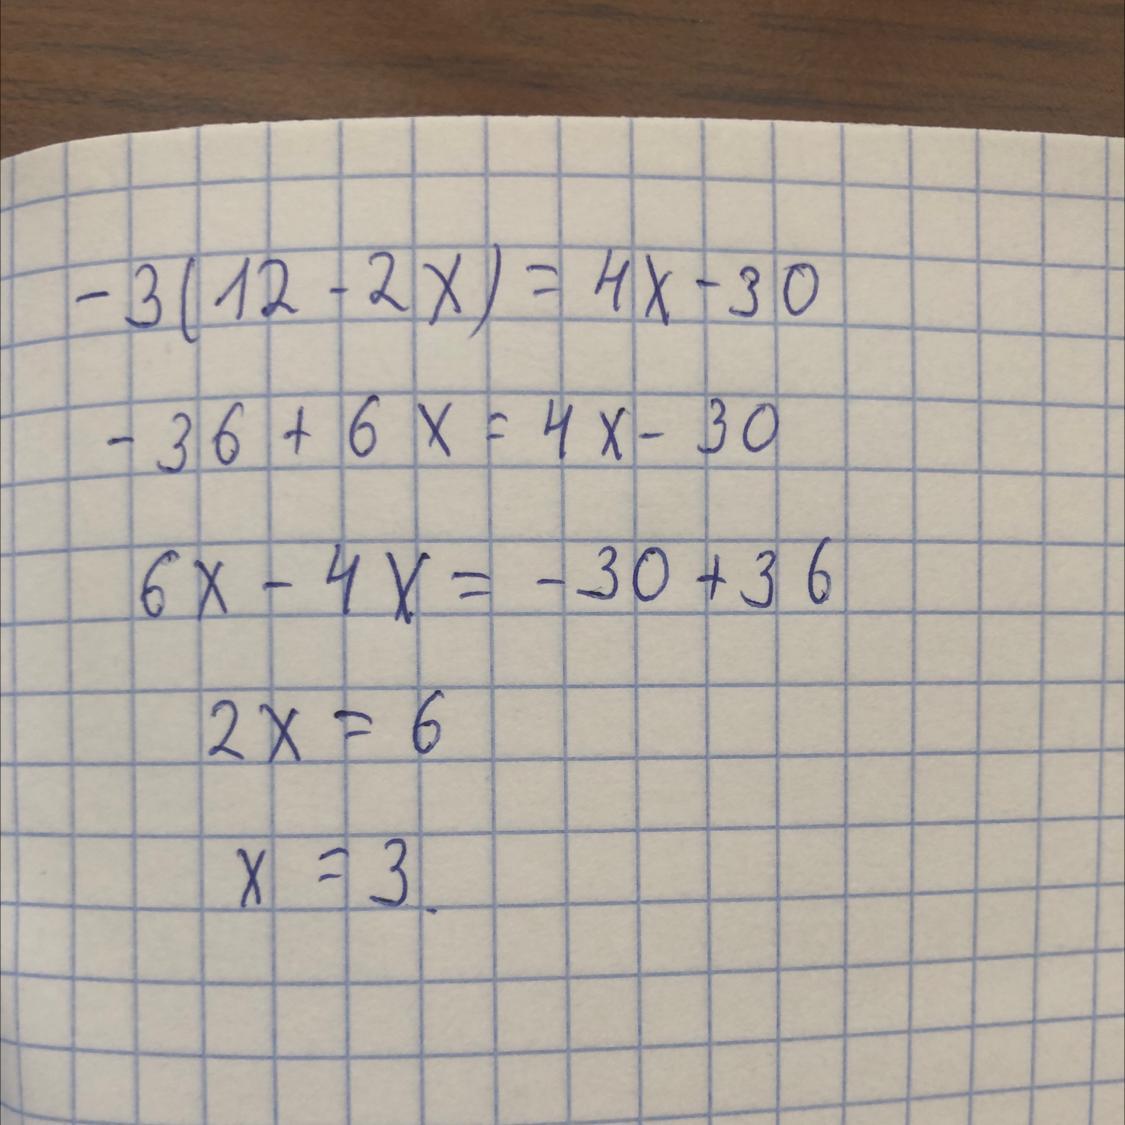 -3(12-2x)=4x-30
-36+6x=4x-30
6x-4x=-30+36
2x=6
x=3.